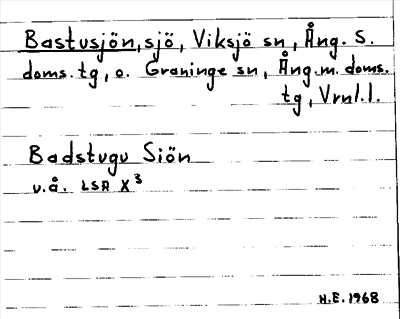 Bastusjön, sjö, Viksjö sn, Ång. S.
doms. tg, o. Graninge sn, Ång. m. doms.
tg, Vrnl. l.
Badstugu Siön
u.å. LSA X³
H.E. 1968